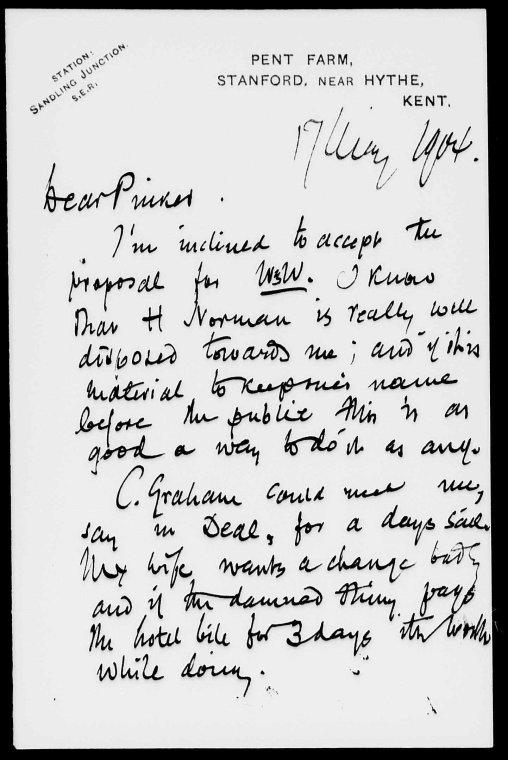 STATION:
SANDLING JUNCTION.
S.E.R.
PENT FARM,
STANFORD, NEAR HYTHE,
KENT.
17 May 1904.
Dear Pinker.
I'm inclined to accept the
proposal for W&W. I know
that H Norman is really well
disposed towards me; and if it is
material to keep one's name
before the public this is as
good a way to do it as any.
C. Graham could meet me,
say in Deal, for a days sail.
My wife wants a change badly
and if the damned thing pays
the hotel bill for 3 days its worth
while doing.